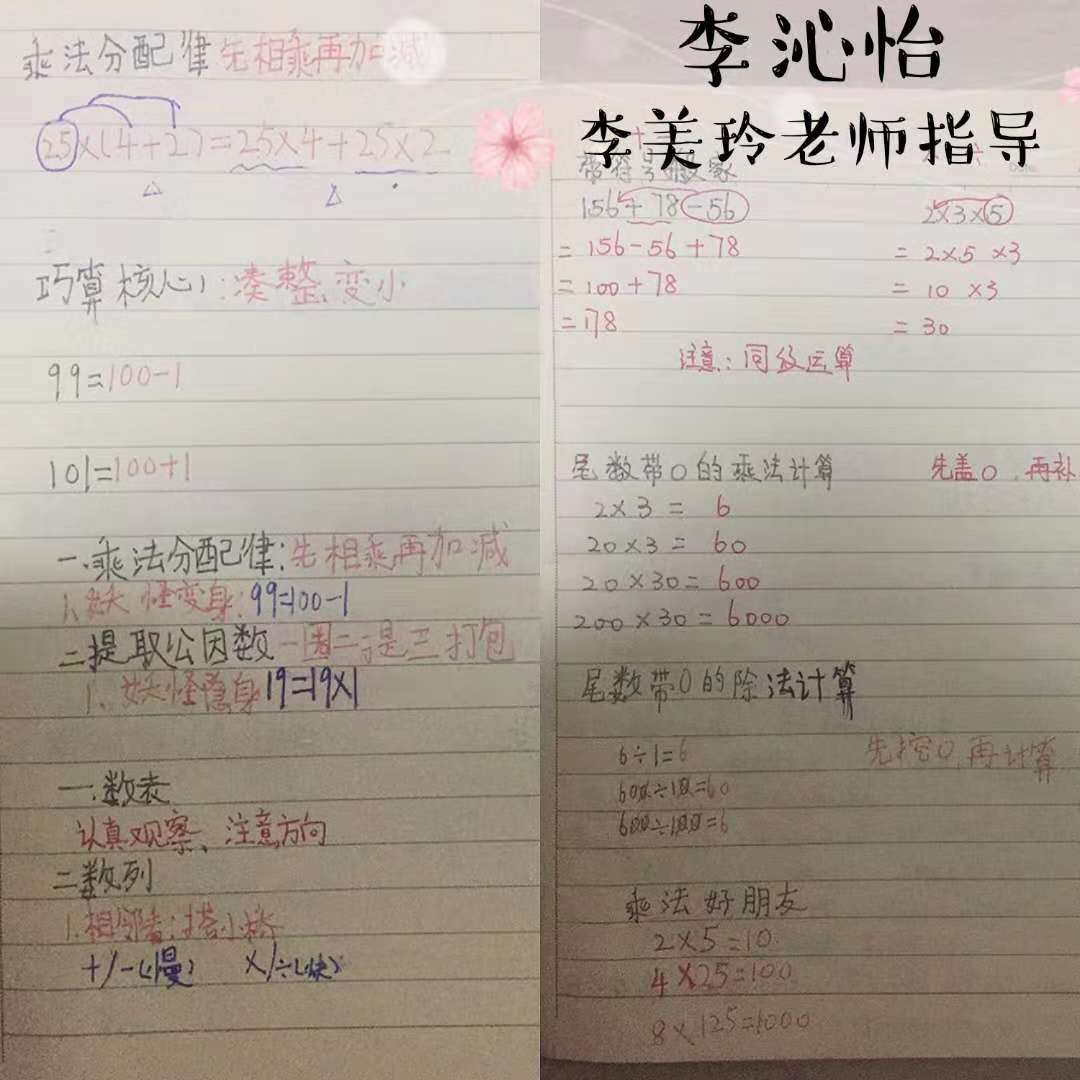 乘法分配律先相乘再加减
25×(4+2)=25×4+25×2
巧算核心:凑整,变小
99=100-1
101=100+1
一.乘法分配律:先相乘再加减
1、妖怪变身:99=100-1
二提取公因数一圈二提三打包
1、妖怪隐身19=19×1
一.数表
认真观察、注意方向
二数列
1.相邻看:搭小桥
+/-(慢) ×/÷(快)
李沁怡
李美玲老师指导
带符号搬家
156+78-56 2×3×5
=156-56+78 =2×5×3
=100+78 =10×3
=178 =30
注意:同级运算
尾数带0的乘法计算 先盖0,再补
2×3=6
20×3=60
20×30=600
200×30=6000
尾数带0的除法计算
6÷1=6 先挖0,再计算
600÷10=60
600÷100=6
乘法好朋友
2×5=10
4×25=100
8×125=1000